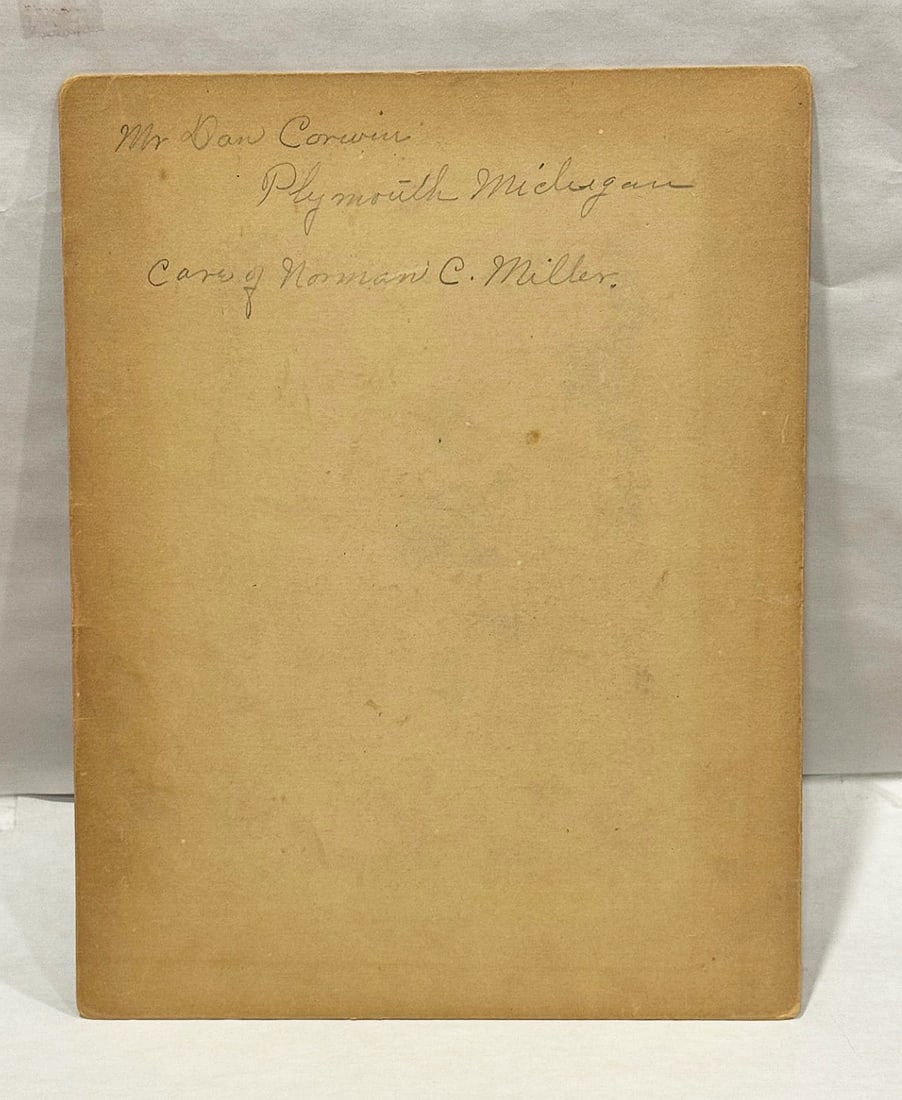 Mr Dan Corwin
Plymouth Michigan
Care of Norman C. Miller.